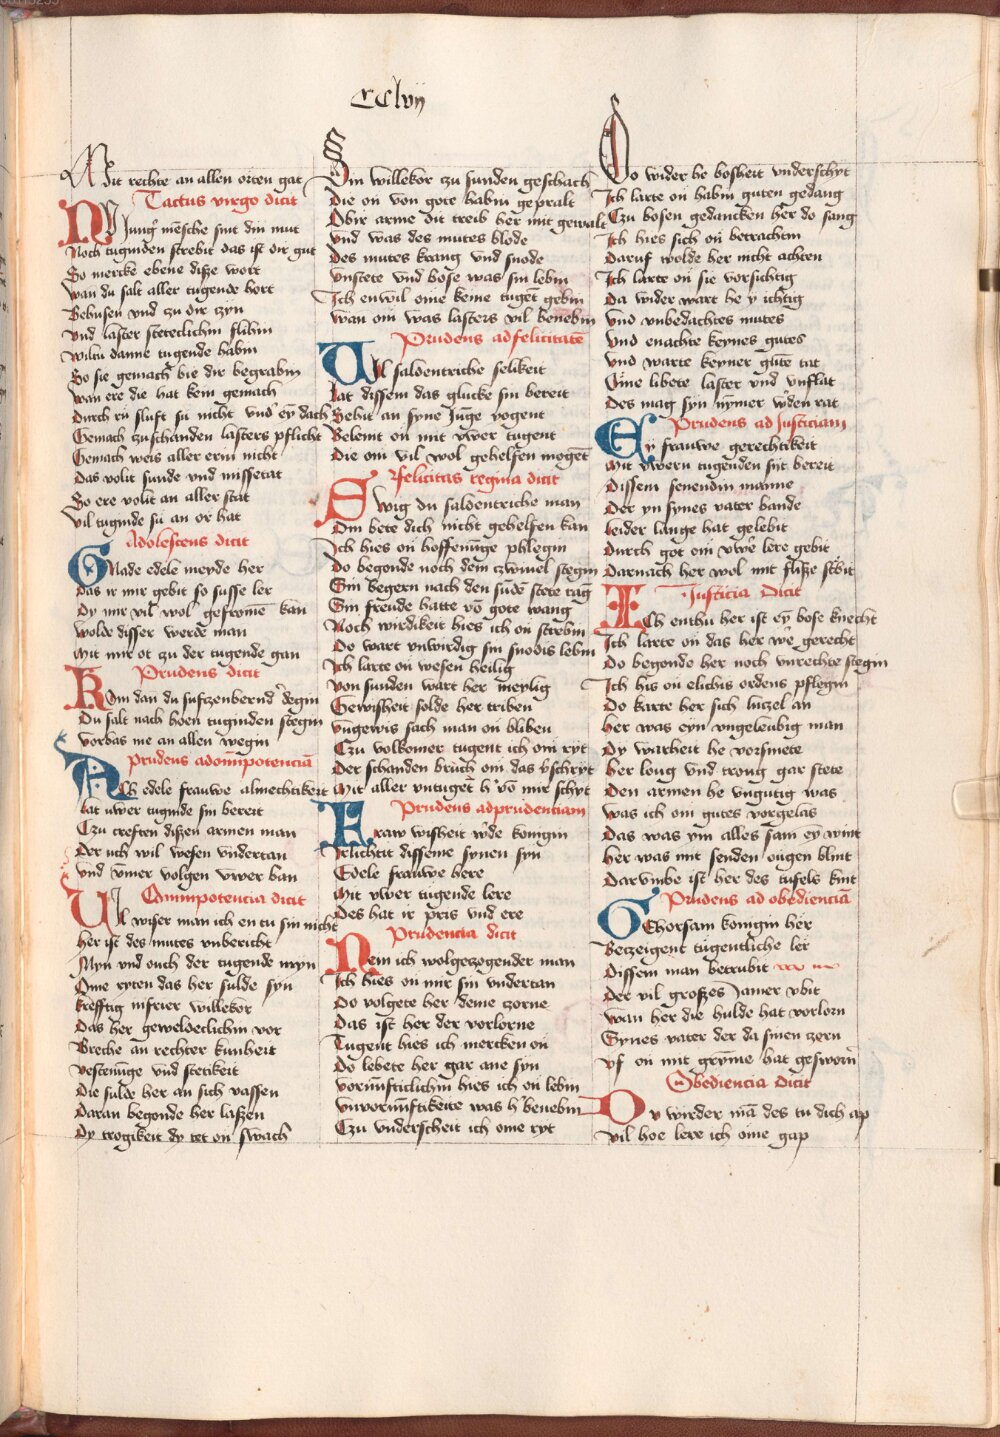 CClvij
Mit rechte an allen orten gar
Tactus virgo dicit
Jung mēsche sint din mut
Noch tuginden strebit das ist dir gut
So mercke ebene disze wort
Wan du salt aller tugende hort
Behusen vnd zu dir czyn
Vnd laster steteclichin flihin
Wiltu danne tugende habin
So sie gemach bie dir begrabin
Wan ere die hat kein gemach
Durch rů sluft su nicht vnd' eȳ dach
Gemach zuschanden lasters pflicht
Gemach weis aller erin nicht
Das volit sunde vnd missetat
So ere volit an aller stat
Vil tuginde su an or hat
Adolescens dicit
GNade edele meyde her
Das ir mir gebit so susse ler
Dy mir vil wol gefromē kan
Wolde disser werde man
Mit mir ot zu der tugende gan
Prudens dicit
KOm dan du sufczenbernd' degin
Du salt nach hoen tuginden stegin
Vorbas me an allen wegin
Prudens adomnipotenciā
ACh edele frauwe almechtikeit
Lat uwer tuginde sin bereit
Czu creften diszen armen man
Der uch wil wesen vndertan
Vnd vmer volgen vwer ban
Omnipotencia dicit
Vl wiser man ich en tu sin nicht
Her ist des mutes vnbericht
Myn vnd ouch der tugende myn
Ome ryten das her sulde syn
Krefftig infrier willekor
Das her geweldeclichin vor
Breche an rechter kunheit
Vestenūge vnd stetikeit
Die sulde her an sich vassen
Daran begonde her laszen
Dy trogikeit dy tet on swach
Sin willekor czu sunden geschach
Die on von gote habin gepralt
Obir arme dit treib her mit gewalt
Vnd was des mutes blode
Des mutes krang vnd snode
Vnstete vnd bose was sin lebin
Ich enwil ome keine tuget gebin
Wan om was lasters vil benebin
Prudens adfelicitatē
Vl saldentriche selikeit
Lat dissem das glucke sin bereit
Behut an syne Juge vogent
Beleint on mit vwer tugent
Die om vil wol gehelfen moget
Felicitas regina dicit
Swig du saldentriche man
Din bete dich nicht gehelfen kan
Ich hies on hoffenūge phlegin
Do begonde noch dem czwiuel stegin
Sin begern nach den sūdē stete rāg
Sin freude hatte vō gote wang
Noch wirdikeit hies ich on strebin
Do wart vnwirdig sin snodis lebin
Ich larte on wesen heilig
Von sunden wart her meylig
Gewisheit solde her triben
Vngewis sach man on bliben
Czu volkomer tugent ich om ryt
Der schanden bruch om das v'schryt
Mit aller vntuget h' vō mir schyt
Prudens adprudentiam
Fraw wisheit w'de konigin
Irluchtit disseme synen syn
Edele frauwe here
Mit vwer tugende lere
Des hat ir pris vnd ere
Prudencia dicit
Nein ich wolgeczogender man
Ich hies on mir sin vndertan
Do volgete her deme czorne
Das ist her der vorlorne
Tugent hies ich mercken on
Do lebete her gar ane syn
Vornūfticlichin hies ich on lebin
Vnvornūftikeite was h' benebin
Czu vnderscheit ich ome ryt
Do wider he bosheit vnderschyt
Ich larte on habin guten gedang
Czu bosen gedancken her do sang
Ich hies sich on betrachtin
Daruf wolde her nicht achten
Ich larte on sie vorsichtig
Da wider wart he y ichtig
Vnd vnbedachtes mutes
Vnd enachte keynes gutes
Vnd warte keyner gute tat
Sine libete laster vnd vnflat
Des mag syn nȳmer w'den rat
Prudens ad Justiciam
Ey frauwe gerechtikeit
Mit vwern tugenden sijt bereit
Dissem senendin manne
Der yn synes vater bande
Leider lange hat gelebit
Durch got om vwe' lere gebit
Darnach her wol mit flisze strebit
Justicia Dicit
ICh enthu her ist eȳ bose knecht
Ich larte on das her we gerecht
Do begonde her noch vnrechte stegin
Ich his on elichis ordens pflegin
Do karte her sich luczel an
Her was eyn vngeleubig man
Dy warheit he vorsmete
Her loug vnd troug gar stete
Den armen he vngutig was
Was ich om gutes vorgelas
Das was ym alles sam ey wint
Her was mit senden ougen blint
Darvmbe ist her des tufels kint
Prudens ad obedienciā
GEhorsam konigin her
Beczeigent tugentliche ler
Dissem man betrubit
Der vil groszes Jamer vbit
Wan her die hulde hat vorlorn
Synes vater der da sinen zcorn
Vf on mit gryme hat gesworn
Obediencia dicit
Du wirder mā des tu dich ap
Vil hoe lere ich ome gap